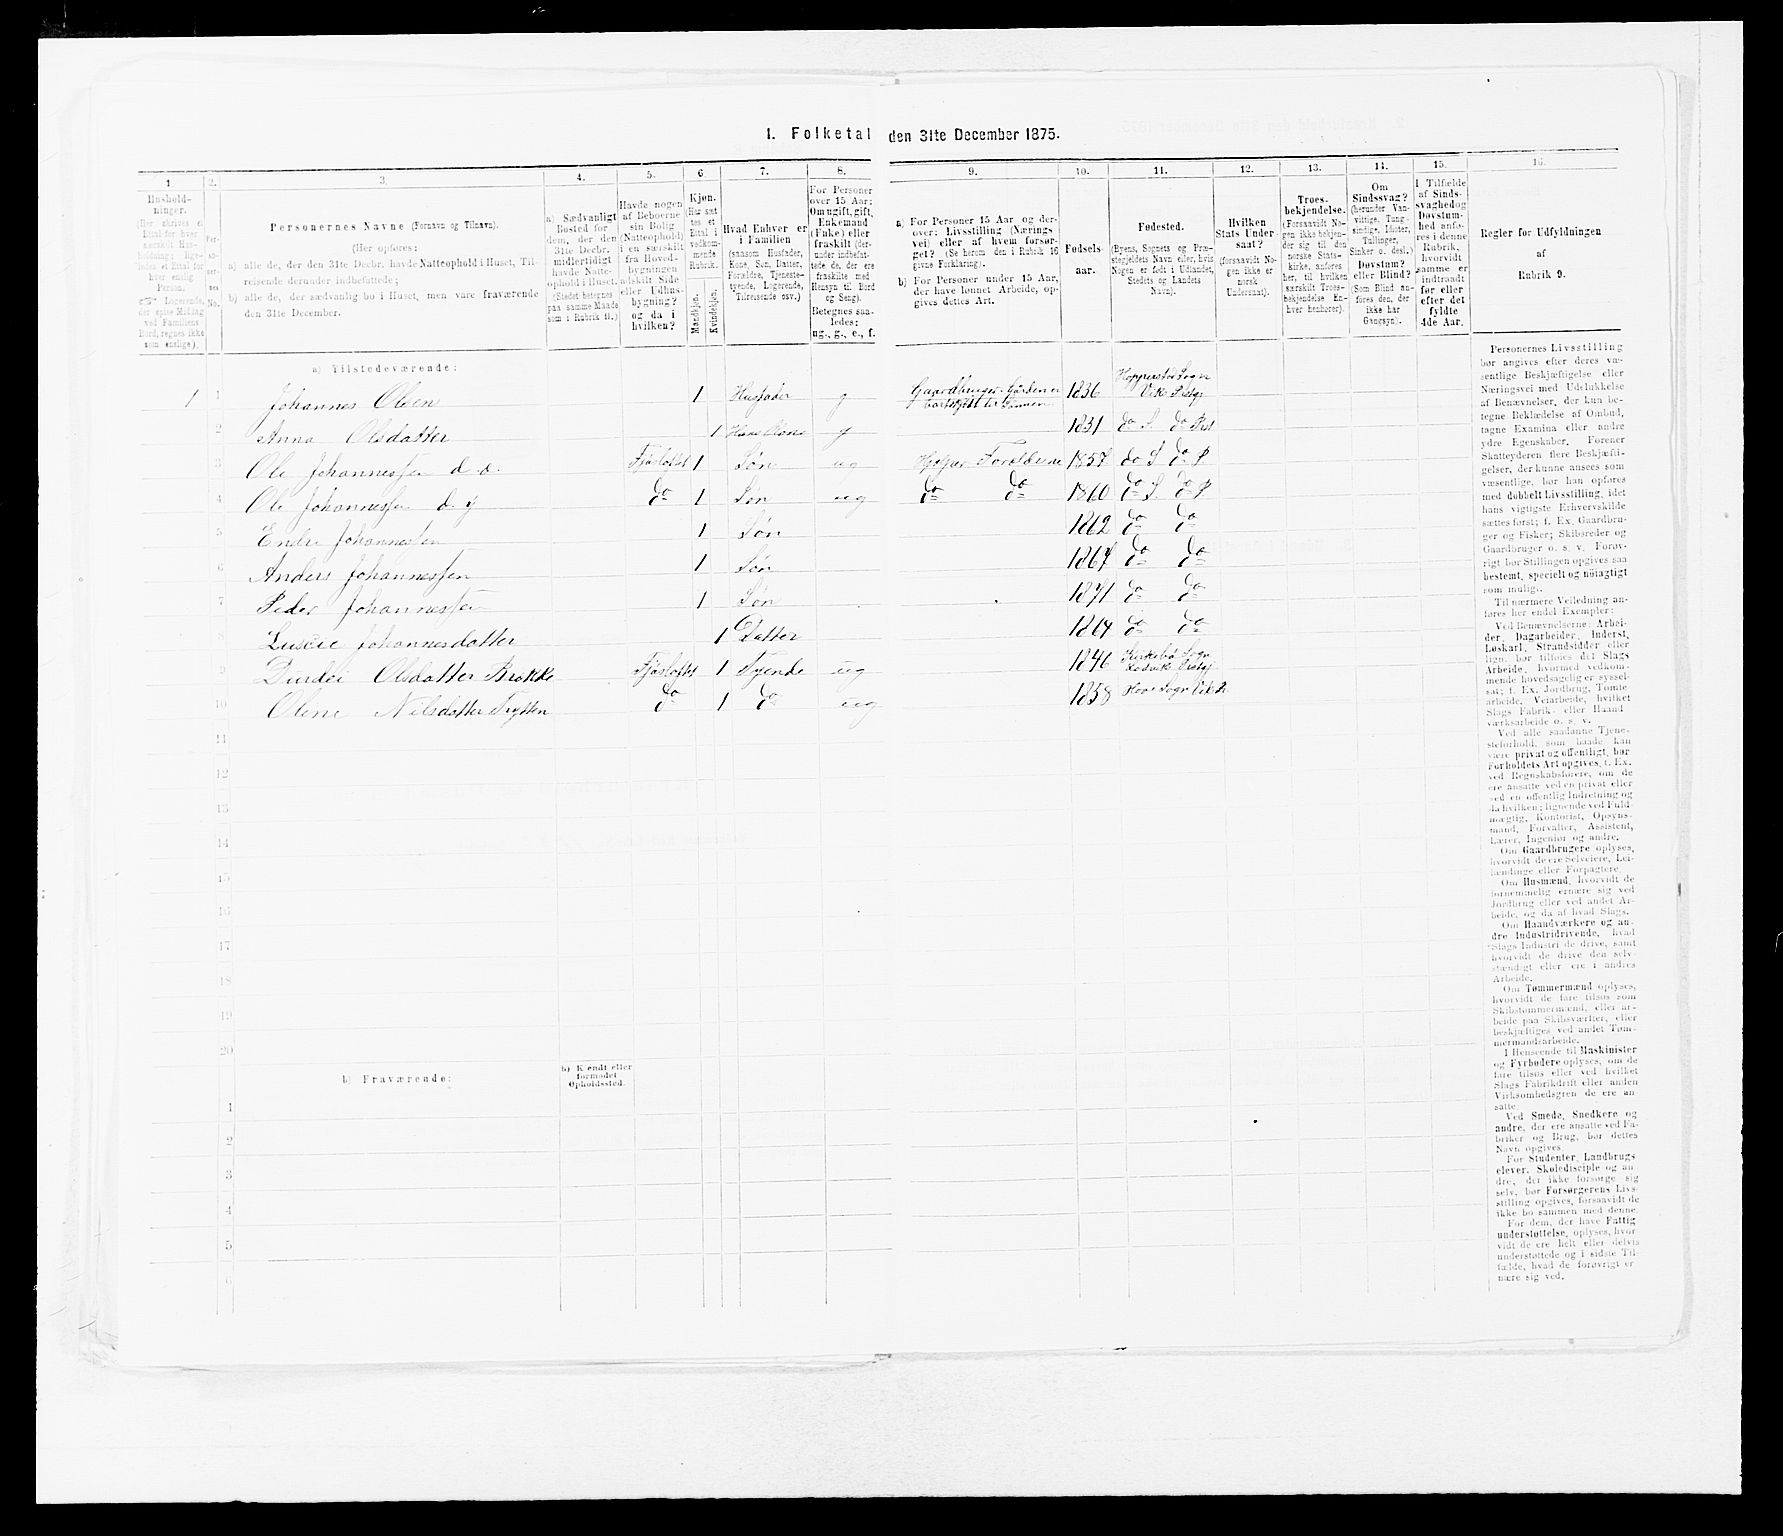 1. Folketal den 31te December 1875.
1. 2. 3. 4. 5. 6. 7. 8. 9. 10. 11. 12. 13. 14. 15. 16.
Hushold-
ninger.
(Her skrives et
Ettal for hver
særskilt Hus-
holdning; lige-
ledes et Ettal for
hver enslig
Person.
Logerende,
der spise Middag
ved Familiens
Bord, regnes ikke
som enslige).
Per-
so-
ner-
nes
No.
Personernes Navne (Fornavn og Tilnavn).
(Her opføres:
a) alle de, der den 31te Decbr. havde Natteophold i Huset, Til-
reisende derunder indbefattede;
b) alle de, der sædvanlig bo i Huset, men vare fraværende
den 31te December.
a) Sædvanligt
Bosted for
dem, der den
31te Decbr.
midlertidigt
havde Natte-
ophold i Huset.
(Stedet betegnes
paa samme Maade
som i Rubrik 11.)
Havde nogen
af Beboerne
sin Bolig
(Natteophold)
i en særskilt
fra Hoved-
bygningen
adskilt Side
eller Udhus-
bygning?
og da i
hvilken?
Kjøn.
(Her sæt-
tes et
Ettal i
vedkom-
mende
Rubrik.
Mandkjøn.
Kvindekjøn.
Hvad Enhver er
i Familien
(saasom Husfader,
Kone, Søn, Datter,
Forældre, Tjeneste-
tyende, Logerende,
Tilreisende osv.)
For Personer
over 15 Aar:
Om ugift, gift,
Enkemand
(Enke) eller
fraskilt (der-
under indbefat-
tede de, der ere
fraskilte med
Hensyn til Bord
og Seng).
Betegnes saa-
ledes:
ug., g., e., f.
a) For Personer 15 Aar og der-
over: Livsstilling (Nærings
vei) eller af hvem forsør-
get? (Se herom den i Rubrik 16
givne Forklaring).
b) For Personer under 15 Aar,
der have lønnet Arbeide, op-
gives dettes Art.
Fødsels-
aar.
Fødested.
(Byens, Sognets og Præ-
stegjeldets Navn eller, hvis
Nogen er født i Udlandet,
Stedets og Landets
Navn).
Hvilken
Stats Under-
saat?
(forsaavidt No-
gen ikke er
norsk
Undersaat).
Troes-
bekjendelse.
(Forsaavidt No-
gen ikke bekjen-
der sig til den
norske Stats-
kirke, anføres
her, til hvilken
særskilt Troes-
bekjendelse En-
hver henhører).
Om
Sindssvag?
(herunder Van-
vittige, Tung-
sindige, Idioter,
Tullinger,
Sinker o. desl.)
Døvstum?
eller Blind?
(Som Blind an-
føres den, der
ikke har
Gangsyn).
I Tilfælde
af Sinds-
svaghed og
Døvstum-
hed anfø-
res i denne
Rubrik,
hvorvidt
samme er
indtraadt
før eller
efter det
fyldte
4de Aar.
Regler for Udfyldningen
af
Rubrik 9.
a) Tilstedeværende:
1 1 Johannes Olsen 1 Husfader g Gaardbruger. Gården er 1836 Hopperstad Sogn
Vik Prstgj
2 Anna Olsdatter 1 Hans Kone g 1831 do S. do Prst
3 Ole Johannessen d. e. Fjøsloftet 1 Søn ug Hjelper Forældrene 1857 do S do P.
4 Ole Johannessen d. y do 1 Søn ug do do 1860 do S. do P
5 Endre Johannessen 1 Søn 1862 do do
6 Anders Johannessen 1 Søn 1867 do do
7 Peder Johannessen 1 Søn 1871 do do
8 Johannesdatter 1 Datter 1864 do do
9 Durdei Olsdatter Brekke Fjøsloftet 1 Tyende ug 1846 Kirkebø Sogn
Ladvik Prstgj
10 Oline Nilsdatter Trytten do 1 do ug 1858 Hove Sogn Vik P.
11
12
13
14
15
16
17
18
19
20
b) Fraværende:
b) Kjendt eller
formodet
Opholdssted.
1
2
3
4
5
6
Personernes Livsstilling
bør angives efter deres væ-
sentlige Beskjæftigelse eller
Næringsvei med Udelukkelse
af Benævnelser, der kun be-
tegne Beklædelse af Ombud,
tagne Examina eller andre
ydre Egenskaber. Forener
Skatteyderen flere Beskjæfti-
gelser, der kunne ansees som
væsentlige, bør han opføres
med dobbelt Livsstilling, idet
hans vigtigste Erhvervskilde
sættes først; f. Ex. Gaardbru-
ger og Fisker; Skibsreder og
Gaardbruger o. s. v. Forøv-
rigt bør Stillingen opgives saa
bestemt, specielt og nøiagtigt
som muligt.
Til nærmere Veiledning an-
føres her endel Exempler:
Ved Benævnelserne: Arbei-
der, Dagarbeider, Inderst,
Løskarl, Strandsidder eller
lign. bør tilføies det Slags
Arbeide, hvormed vedkom-
mende hovedsagelig er syssel-
sat; f. Ex. Jordbrug, Tømte
arbeide, Veiarbeide, hvilket
Slags Fabrik- eller Haand
værksarbeide o. s. v.
Ved alle saadanne Tjene-
steforhold, som baade kan
være privat og offentligt, bør
Forholdets Art opgives, f. Ex.
ved Regnskabsførere, om de
ere ansatte ved en privat eller
ved en offentlig Indretning og
da hvilken; lignende ved Fuld-
mægtig, Kontorist, Opsyns-
mand, Forvalter, Assistent,
Lærer, Ingeniør og andre.
Om Gaardbrugere oplyses,
hvorvidt de ere Selveiere, Lei-
lændinge eller Forpagtere.
Om Husmænd, hvorvidt de
fornemmelig ernære sig ved
Jordbrug eller ved andet Ar-
beide, og da af hvad Slags.
Om Haandværkere og an-
dre Industridrivende, hvad
Slags Industri de drive, samt
hvorvidt de drive den selv-
stændigt eller ere i andres
Arbeide.
Om Tømmermænd oplyses,
hvorvidt de fare tilsøs som
Skibstømmermænd, eller ar-
beide paa Skibsværfter, eller
beskjæftiges ved andet Tøm-
mermandsarbeide.
I Henseende til Maskinister
og Fyrbødere oplyses, om de
fare tilsøs eller ved hvilket
Slags Fabrikdrift eller anden
Virksomhedsgren de ere an
satte.
Ved Smede, Snedkere og
andre, der ere ansatte ved Fa-
briker og Brug, bør dettes
Navn opgives.
For Studenter, Landbrugs
elever, Skoledisciple og an-
dre, der ikke forsørge sig
selv, bør Forsørgerens Livs-
stilling opgives, forsaavidt de
ikke bo sammen med denne.
For dem, der have Fattig
understøttelse, oplyses, hvor
vidt de ere helt eller delvis
understøttede og i sidste Til-
fælde, hvad de forøvrigt er
nære sig ved.